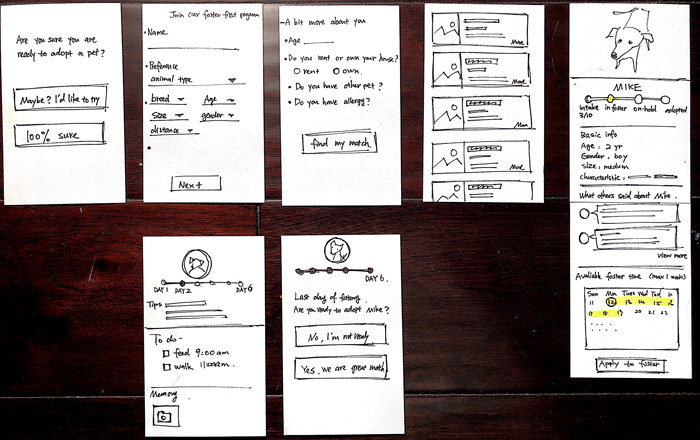 Are you sure you are
ready to adopt a pet?
Maybe? I'd like to try
100% sure
Join our foster-first program
Name
Preference
animal type
breed
Age
size
gender
distance
Next
A bit more about you
Age
Do you rent or own your house?
rent
own
Do you have other pet?
Do you have allergy?
find my match
More
More
More
More
MIKE
Intake
in foster
on-hold
adopted
3/10
Basic info
Age : 2 yr
Gender : boy
size : medium
characteristic :
What others said about Mike
view more
Available foster time (max 1 week)
Sun Mon Tues Wed
11 12 13 14 15
17 18 19 20 21 22
Apply to foster
DAY 1 DAY 2 DAY 6
Tips
To do -
feed 9:00am
walk
Memory
DAY 6.
Last day of
Are you ready to adopt Mike?
No, I'm not ready
Yes, we are great match